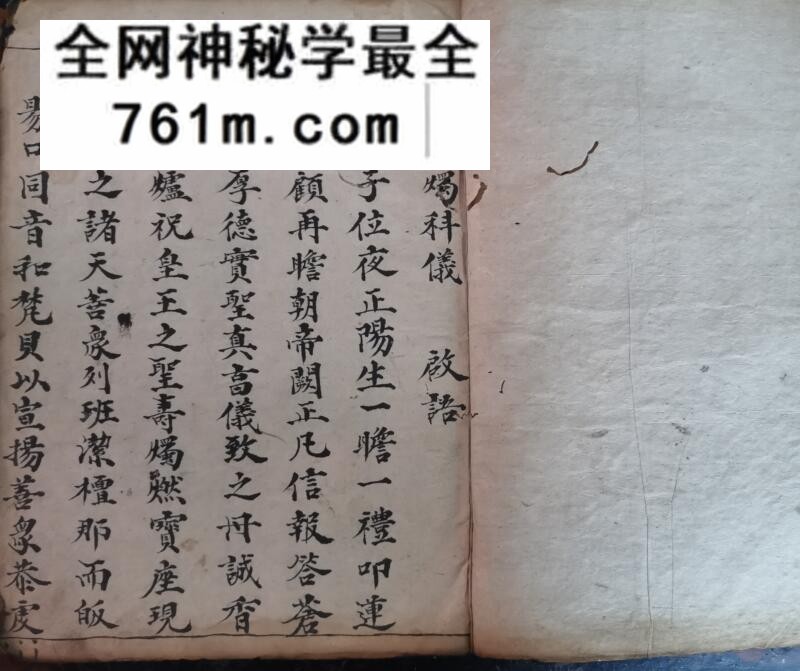 全网神秘学最全
761m.com
燭科儀 啟語
子位夜正陽生一瞻一禮叩蓮
顧再瞻朝帝闕正凡信報答蒼
厚德實聖真啻儀致之丹誠香
爐祝皇王之聖壽燭燃寶座現
之諸天善衆列班潔檀那而皈
口同音和梵貝以宣揚善衆恭虔